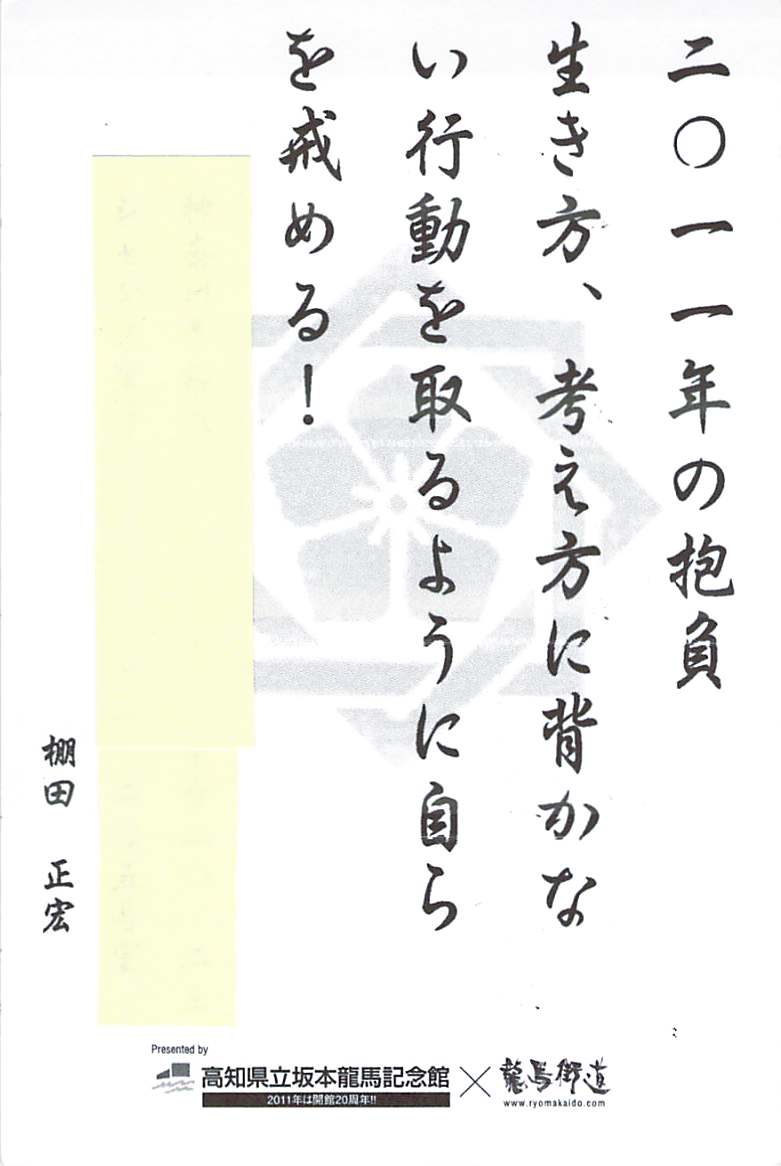 二〇一一年の抱負
生き方、考え方に背かな
い行動を取るように自ら
を戒める！
棚田 正宏
Presented by
高知県立坂本龍馬記念館
2011年は開館20周年!!
龍馬街道
www.ryomakaido.com